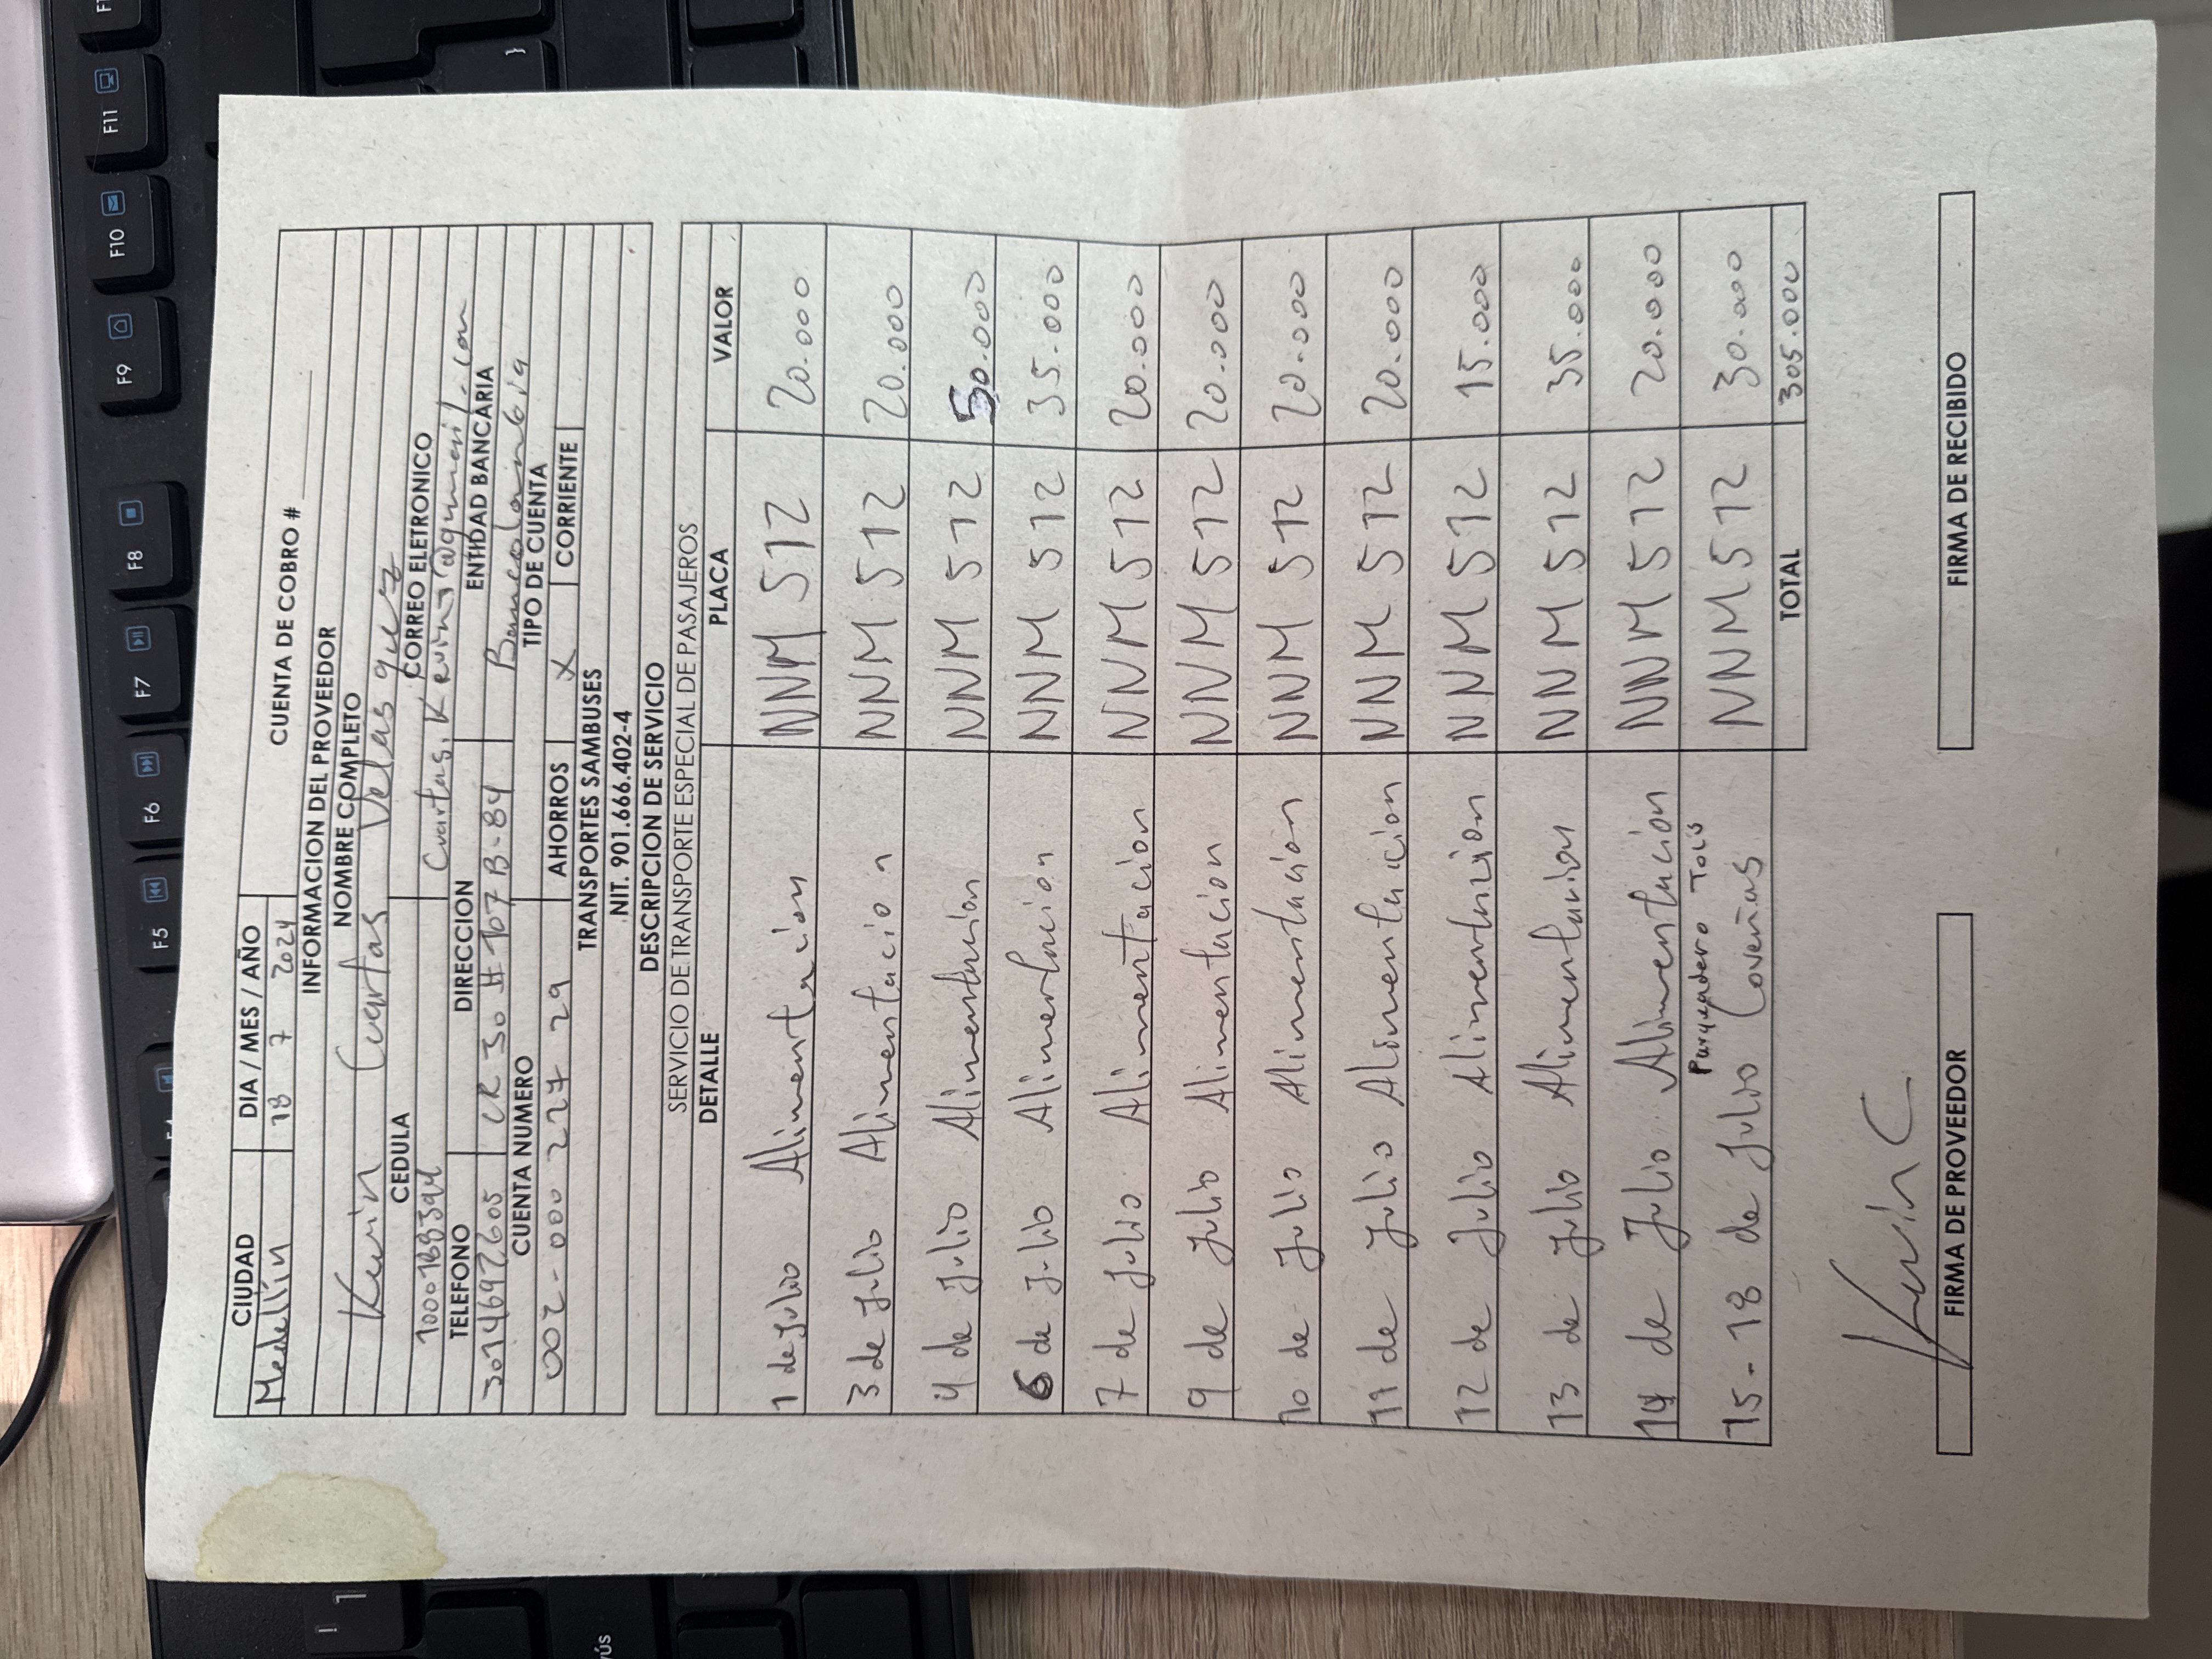 CIUDAD DIA / MES / AÑO CUENTA DE COBRO #
Medellín 18 7 2024
INFORMACION DEL PROVEEDOR
NOMBRE COMPLETO
Kevin Cuartas Velasquez
CEDULA CORREO ELETRONICO
1000188394 Cuartas.Kevin1@gmail.com
TELEFONO DIRECCION ENTIDAD BANCARIA
3014692605 CR 30 # 107 B-84 Bancolombia
CUENTA NUMERO TIPO DE CUENTA
002-000 227 29 AHORROS X CORRIENTE
TRANSPORTES SAMBUSES
NIT. 901.666.402-4
DESCRIPCION DE SERVICIO
SERVICIO DE TRANSPORTE ESPECIAL DE PASAJEROS
DETALLE PLACA VALOR
1 de julio Alimentacion NNM 512 20.000
3 de julio Alimentacion NNM 512 20.000
4 de julio Alimentacion NNM 512 50.000
6 de julio Alimentacion NNM 512 35.000
7 de julio Alimentacion NNM 512 20.000
9 de julio Alimentacion NNM 512 20.000
10 de julio Alimentacion NNM 512 20.000
11 de julio Alimentacion NNM 512 20.000
12 de julio Alimentacion NNM 512 15.000
13 de julio Alimentacion NNM 512 35.000
14 de julio Alimentacion NNM 512 20.000
Parqueadero Tolú
15-18 de julio Coveñas NNM 512 30.000
TOTAL 305.000
Kevin C
FIRMA DE PROVEEDOR FIRMA DE RECIBIDO
F5
F6
F7
F8
F9
F10
F11
! 1